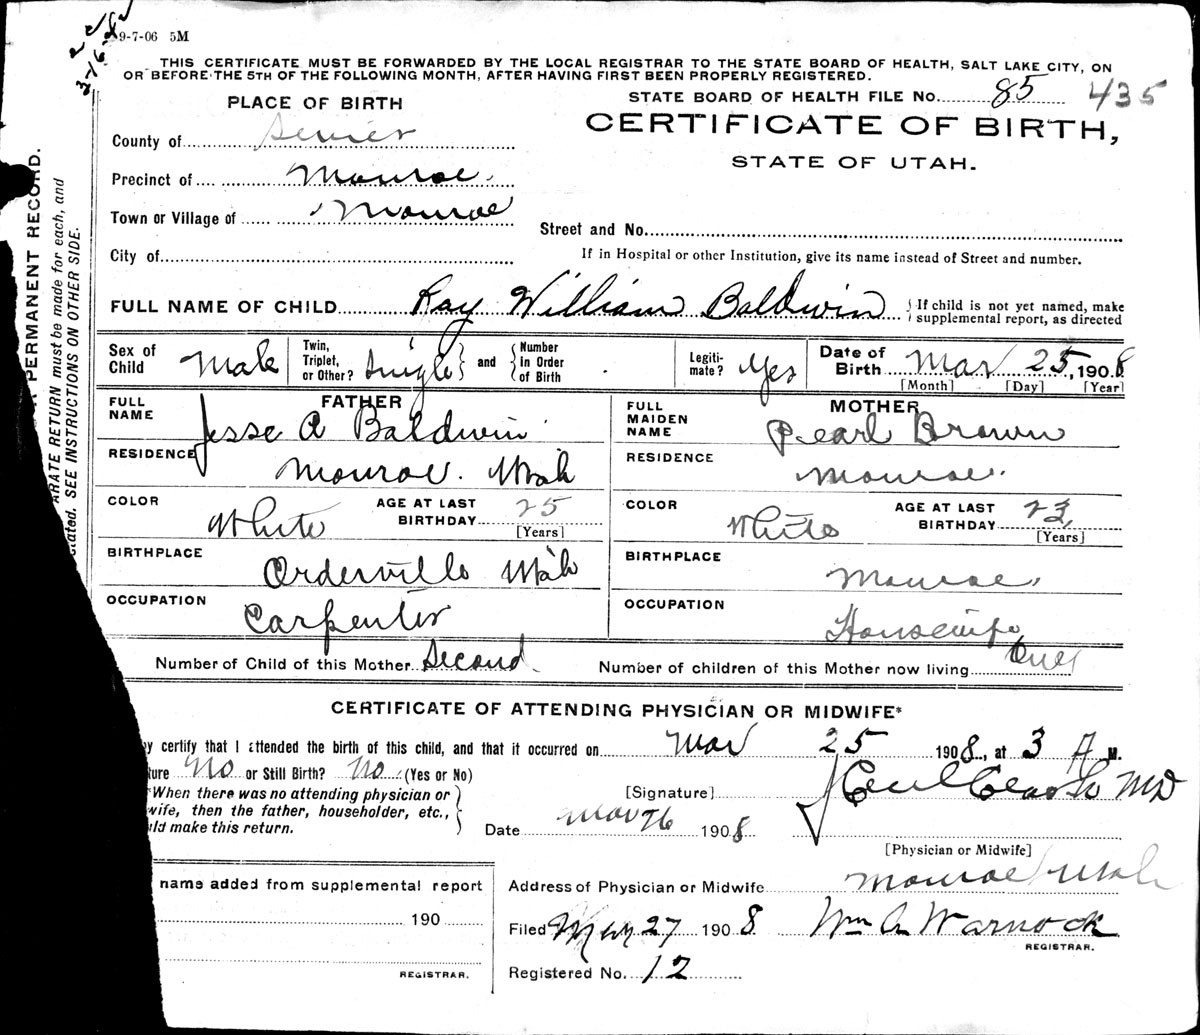 9-7-06 5M
THIS CERTIFICATE MUST BE FORWARDED BY THE LOCAL REGISTRAR TO THE STATE BOARD OF HEALTH, SALT LAKE CITY, ON
OR BEFORE THE 5TH OF THE FOLLOWING MONTH, AFTER HAVING FIRST BEEN PROPERLY REGISTERED.
STATE BOARD OF HEALTH FILE No. 85 435
PLACE OF BIRTH
CERTIFICATE OF BIRTH,
STATE OF UTAH.
County of Sevier
Precinct of Monroe.
Town or Village of Monroe
Street and No.
City of
If in Hospital or other Institution, give its name instead of Street and number.
FULL NAME OF CHILD Ray William Baldwin { If child is not yet named, make
supplemental report, as directed
Sex of Child Male Twin, Triplet, or Other? Single } and { Number in Order of Birth Legiti-mate? Yes Date of Birth Mar 25, 1908
[Month] [Day] [Year]
FATHER MOTHER
FULL NAME Jesse A Baldwin FULL MAIDEN NAME Pearl Brown
RESIDENCE Monroe. Utah RESIDENCE Monroe.
COLOR White AGE AT LAST BIRTHDAY 25 [Years] COLOR White AGE AT LAST BIRTHDAY 23 [Years]
BIRTHPLACE Orderville Utah BIRTHPLACE Monroe.
OCCUPATION Carpenter OCCUPATION Housewife
Number of Child of this Mother Second. Number of children of this Mother now living
CERTIFICATE OF ATTENDING PHYSICIAN OR MIDWIFE*
y certify that I attended the birth of this child, and that it occurred on Mar 25 1908, at 3 A M.
ture No or Still Birth? No. (Yes or No)
*When there was no attending physician or
wife, then the father, householder, etc.,
ld make this return.
[Signature] J Cecil MD
Date Mar 26 1908
[Physician or Midwife]
name added from supplemental report
190
REGISTRAR.
Address of Physician or Midwife Monroe Utah
Filed May 27 1908 Wm A Warnock
REGISTRAR.
Registered No. 12
PERMANENT RECORD.
ARATE RETURN must be made for each, and
stated. SEE INSTRUCTIONS ON OTHER SIDE.